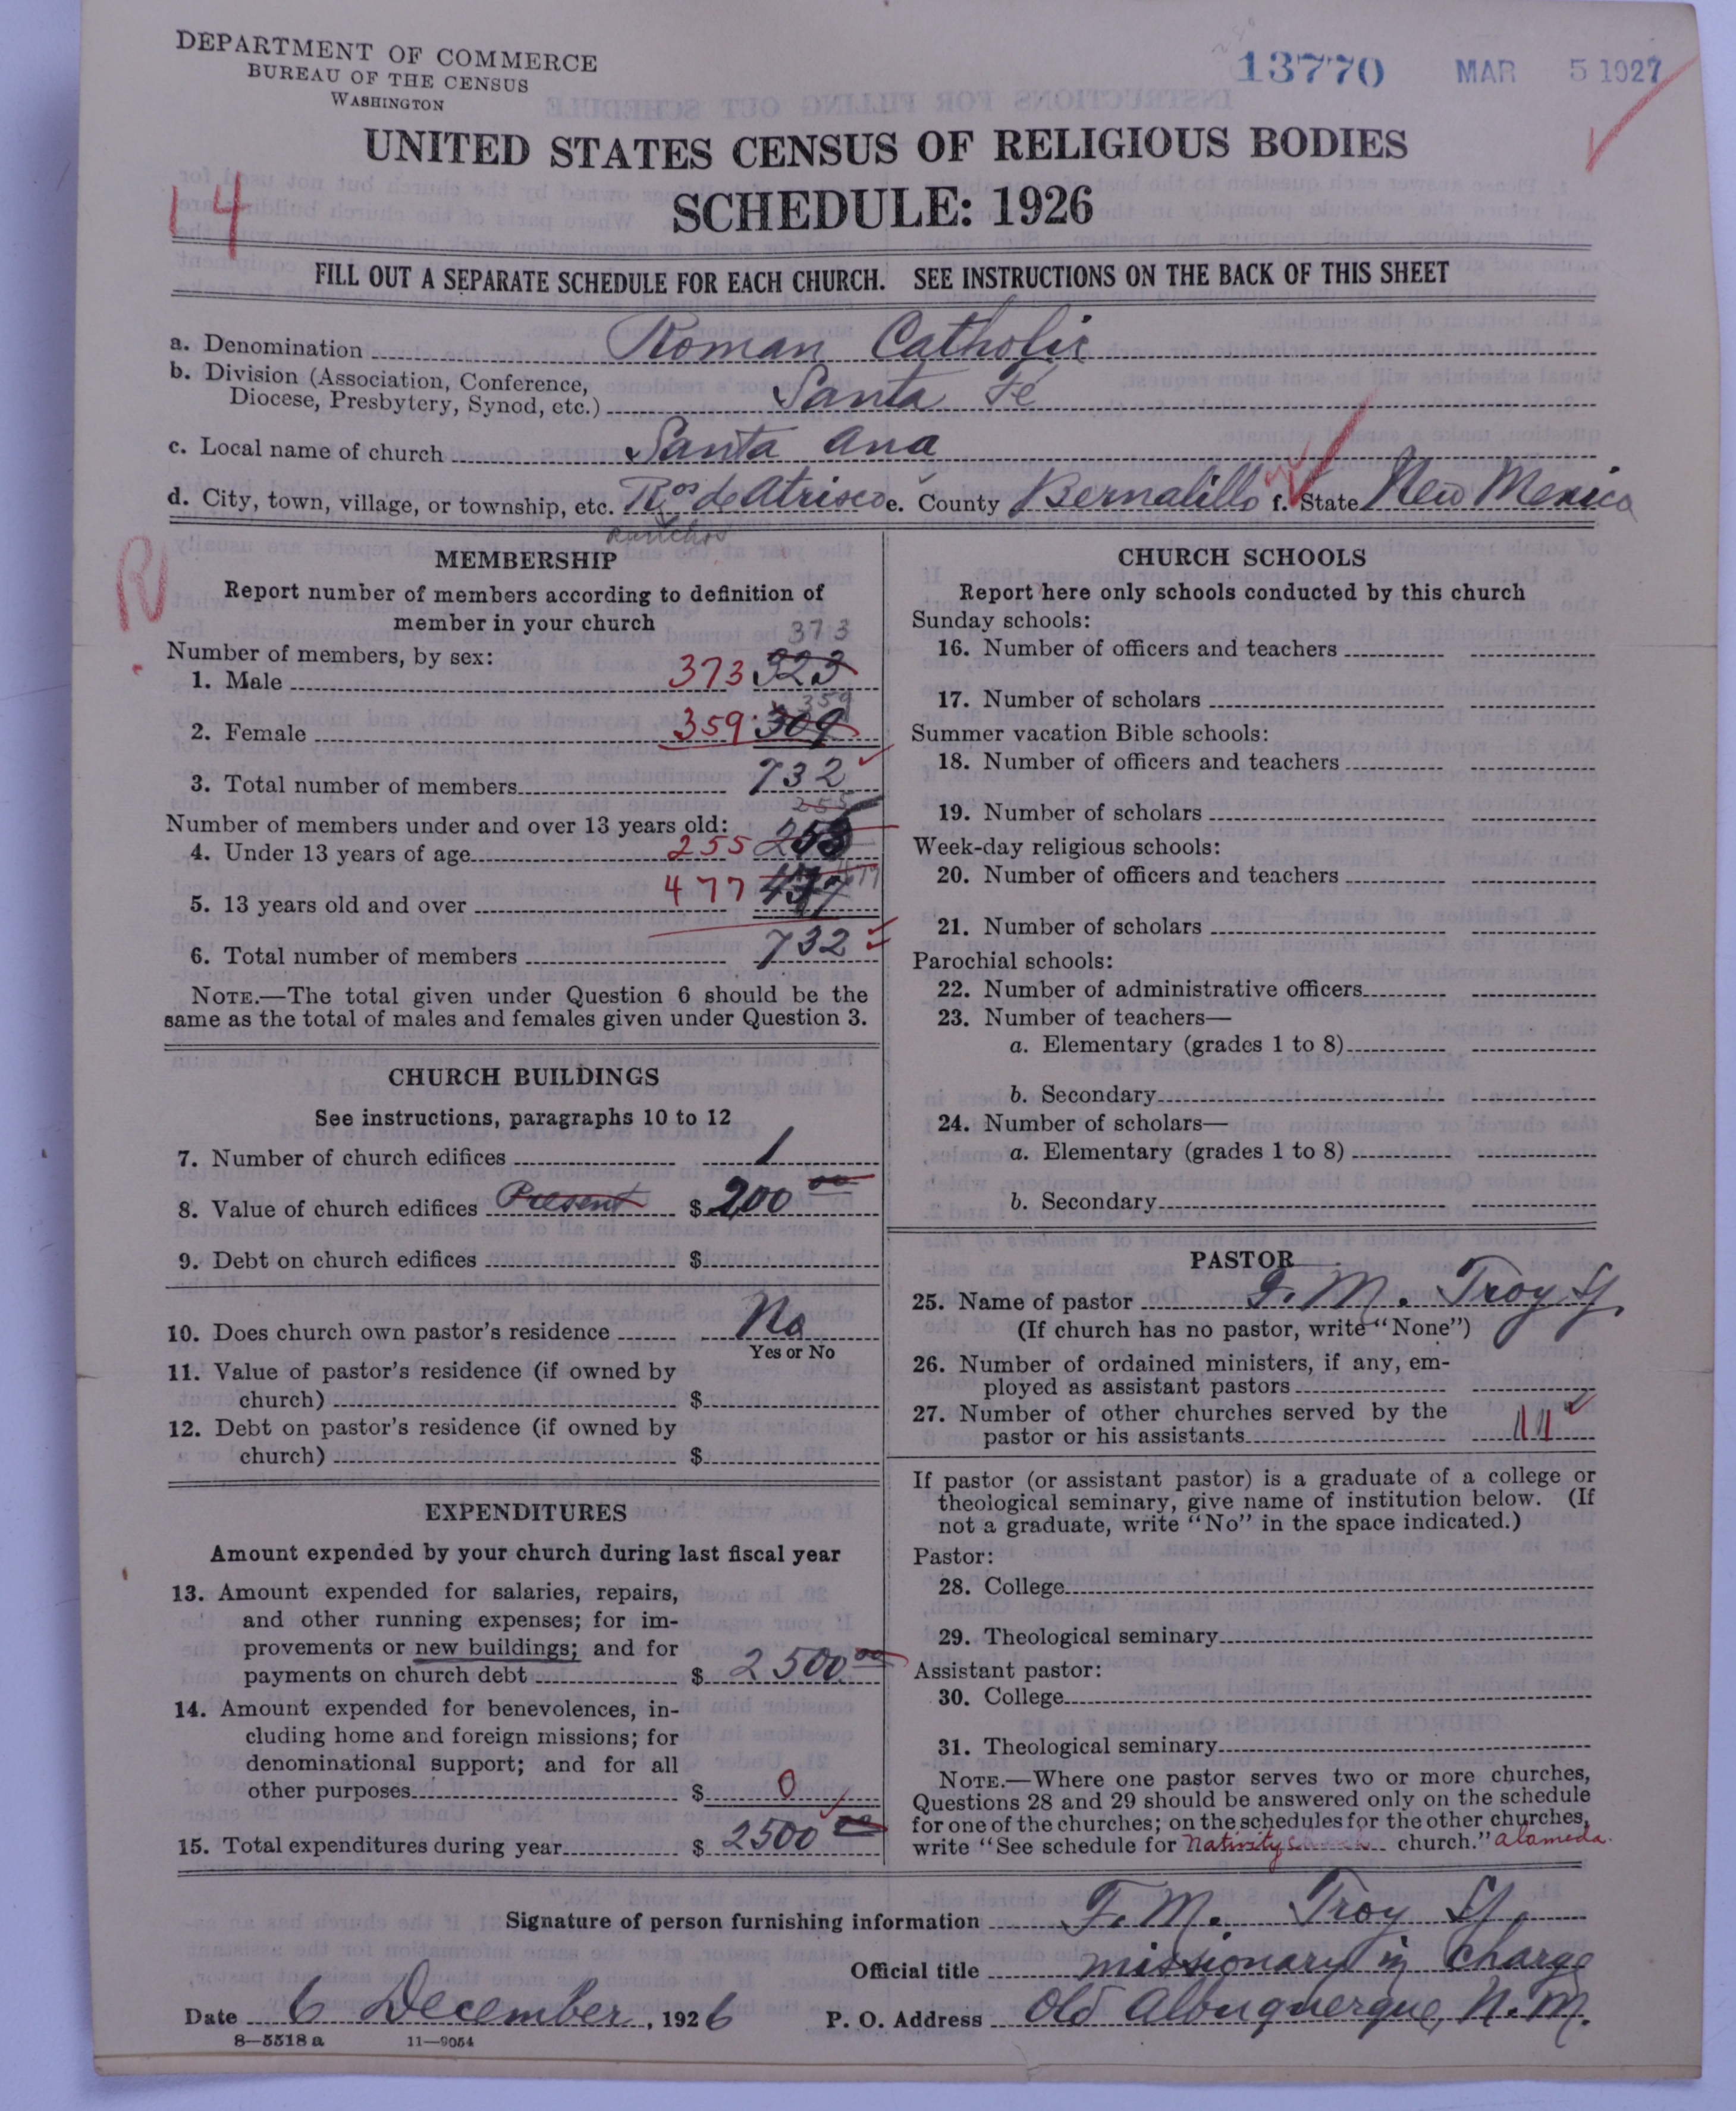 DEPARTMENT OF COMMERCE
BUREAU OF THE CENSUS
WASHINGTON
13770 MAR 5 1927
UNITED STATES CENSUS OF RELIGIOUS BODIES
SCHEDULE: 1926
14
FILL OUT A SEPARATE SCHEDULE FOR EACH CHURCH. SEE INSTRUCTIONS ON THE BACK OF THIS SHEET
a. Denomination Roman Catholic
b. Division (Association, Conference,
Diocese, Presbytery, Synod, etc.) Santa Fé
c. Local name of church Santa Ana
d. City, town, village, or township, etc. Ros de Atrisco e. County Bernalillo f. State New Mexico
Ranchos
R
MEMBERSHIP
Report number of members according to definition of
member in your church
373
Number of members, by sex:
1. Male 373 323
359
2. Female 359 309
3. Total number of members 732
255
Number of members under and over 13 years old:
4. Under 13 years of age 255
5. 13 years old and over 477
6. Total number of members 732
NOTE.—The total given under Question 6 should be the
same as the total of males and females given under Question 3.
CHURCH BUILDINGS
See instructions, paragraphs 10 to 12
7. Number of church edifices 1
8. Value of church edifices Present $ 200 00
9. Debt on church edifices $
10. Does church own pastor's residence No
Yes or No
11. Value of pastor's residence (if owned by
church) $
12. Debt on pastor's residence (if owned by
church) $
EXPENDITURES
Amount expended by your church during last fiscal year
13. Amount expended for salaries, repairs,
and other running expenses; for im-
provements or new buildings; and for
payments on church debt $ 2500 00
14. Amount expended for benevolences, in-
cluding home and foreign missions; for
denominational support; and for all
other purposes $ 0
15. Total expenditures during year $ 2500 00
CHURCH SCHOOLS
Report here only schools conducted by this church
Sunday schools:
16. Number of officers and teachers
17. Number of scholars
Summer vacation Bible schools:
18. Number of officers and teachers
19. Number of scholars
Week-day religious schools:
20. Number of officers and teachers
21. Number of scholars
Parochial schools:
22. Number of administrative officers
23. Number of teachers—
a. Elementary (grades 1 to 8)
b. Secondary
24. Number of scholars—
a. Elementary (grades 1 to 8)
b. Secondary
PASTOR
25. Name of pastor F. M. Troy SJ.
(If church has no pastor, write "None")
26. Number of ordained ministers, if any, em-
ployed as assistant pastors
27. Number of other churches served by the
pastor or his assistants 11
If pastor (or assistant pastor) is a graduate of a college or
theological seminary, give name of institution below. (If
not a graduate, write "No" in the space indicated.)
Pastor:
28. College
29. Theological seminary
Assistant pastor:
30. College
31. Theological seminary
NOTE.—Where one pastor serves two or more churches,
Questions 28 and 29 should be answered only on the schedule
for one of the churches; on the schedules for the other churches,
write "See schedule for Nativity church." Alameda.
Signature of person furnishing information F. M. Troy SJ.
Official title missionary in charge
Date 6 December, 1926 P. O. Address Old Albuquerque, N. M.
8—5518 a 11—9054